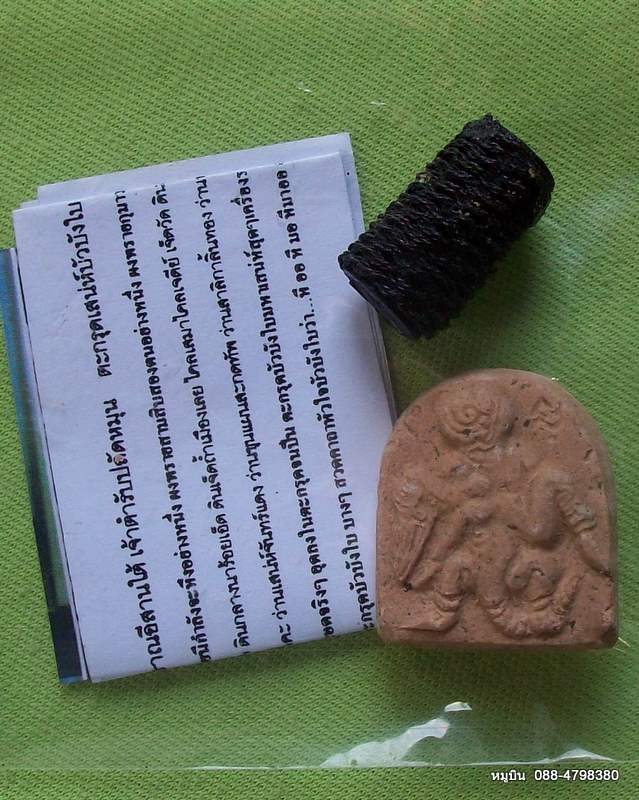 าณอีสานใต้ เจ้าตำรับปลัดหมุน ตะกรุดเสน่ห์บัวบังใบ
รมีกำลังฉะทึงอย่างหนึ่ง ผงพรายสามสิบสองตนอย่างหนึ่ง ผงพรายกุมาร
ดินกลางนาร้อยเอ็ด ดินเจ็ดถ้ำเมืองเลย ไคลเสมาไคลเจดีย์ เจ็ดวัด ดิน
คะ ว่านเสน่ห์จันทร์แดง ว่านขุนแผนสะกดทัพ ว่านสาลิกาลิ้นทอง ว่าน
อดจริงๆ อุดลงในตะกรุดจนเป็น ตะกรุดบัวบังใบมหาเสน่ห์สุดๆเครื่องร
ะกรุดบัวบังใบ บางๆ สวดคาถาหัวใจบัวบังใบว่า...ทิ ออ ทิ มอ ทิเกออ
หมูบิน 088-4798380